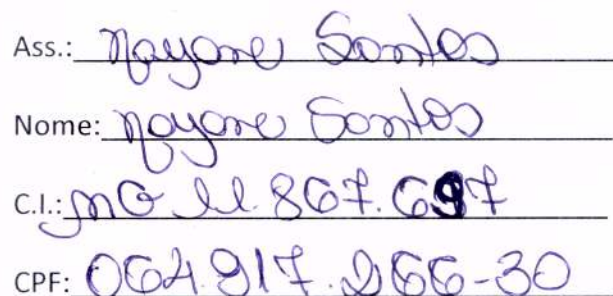 Ass.: Nayane Santos
Nome: Nayane Santos
C.I.: MG 11.867.697
CPF: 064.917.266-30